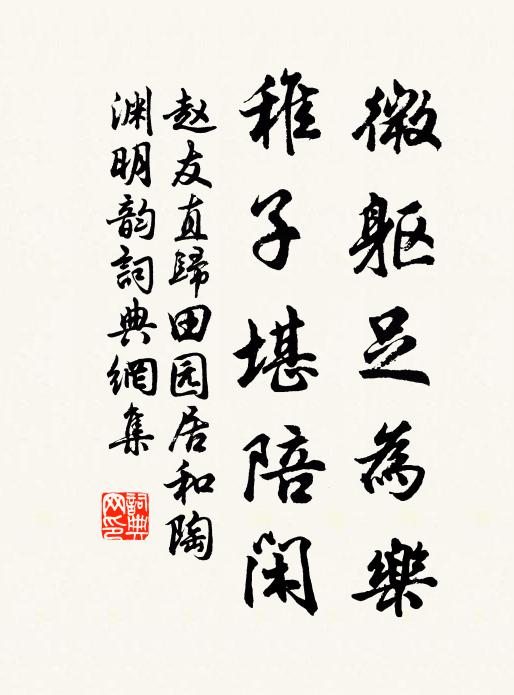 微躯足為樂
稚子堪陪閑
赵友直歸田园居和陶
渊明韵詞典網集
詞典
网印